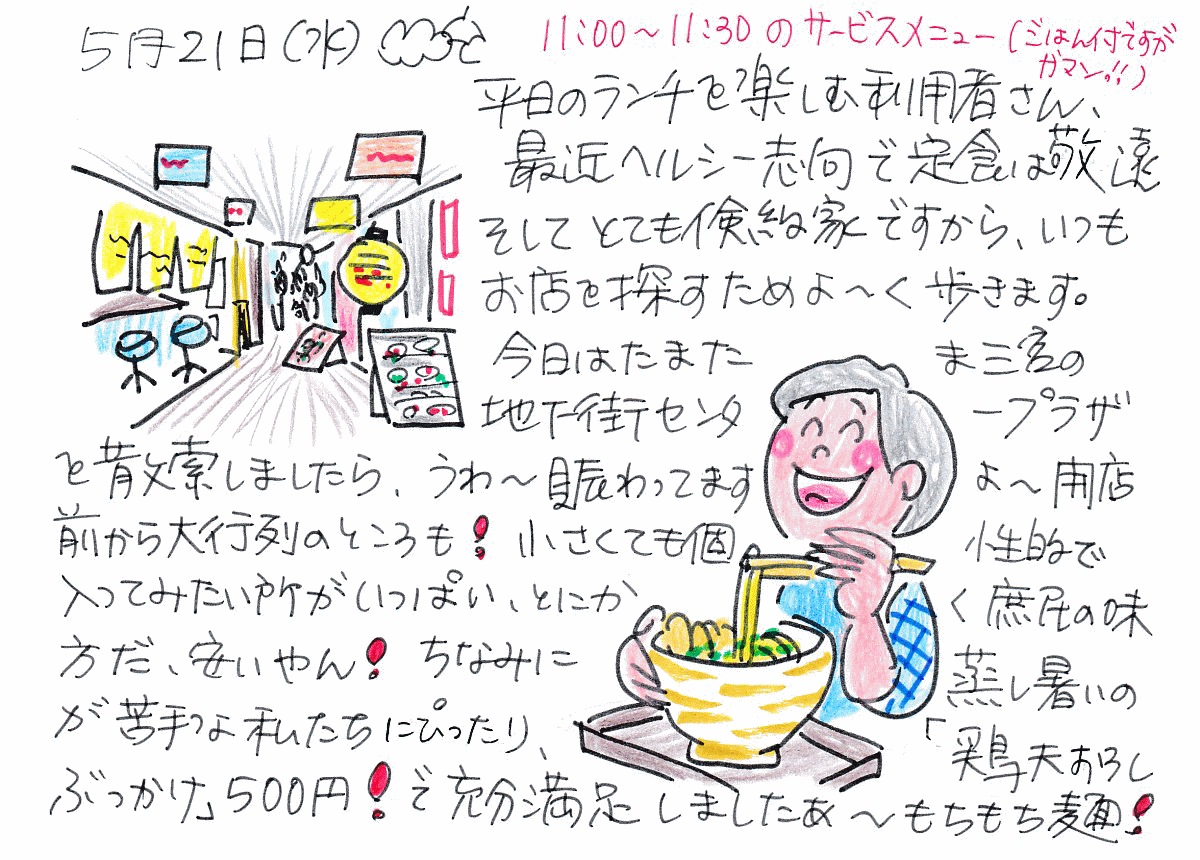 5月21日(水)
11:00〜11:30のサービスメニュー(ごはん付ですが
ガマン!!)
平日のランチを楽しむ利用者さん、
最近ヘルシー志向で定食は敬遠
そしてとても倹約家ですから、いつも
お店を探すためよ〜く歩きます。
今日はたまたま三宮の
地下街センタープラザ
を散索しましたら、うわ〜賑わってますよ〜開店
前から大行列のところも!小さくても個性的で
入ってみたい所がいっぱい、とにかく庶民の味
方だ、安いやん!ちなみに蒸し暑いの
が苦手な私たちにぴったり、「鶏天おろし
ぶっかけ」500円!で充分満足しましたぁ〜もちもち麺!